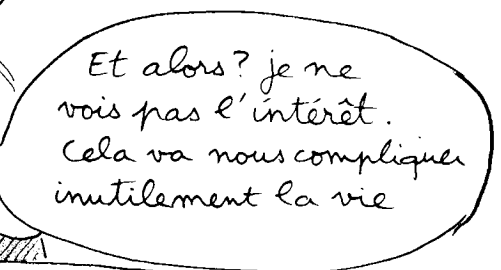 Et alors? je ne
vois pas l'intérêt.
Cela va nous compliquer
inutilement la vie